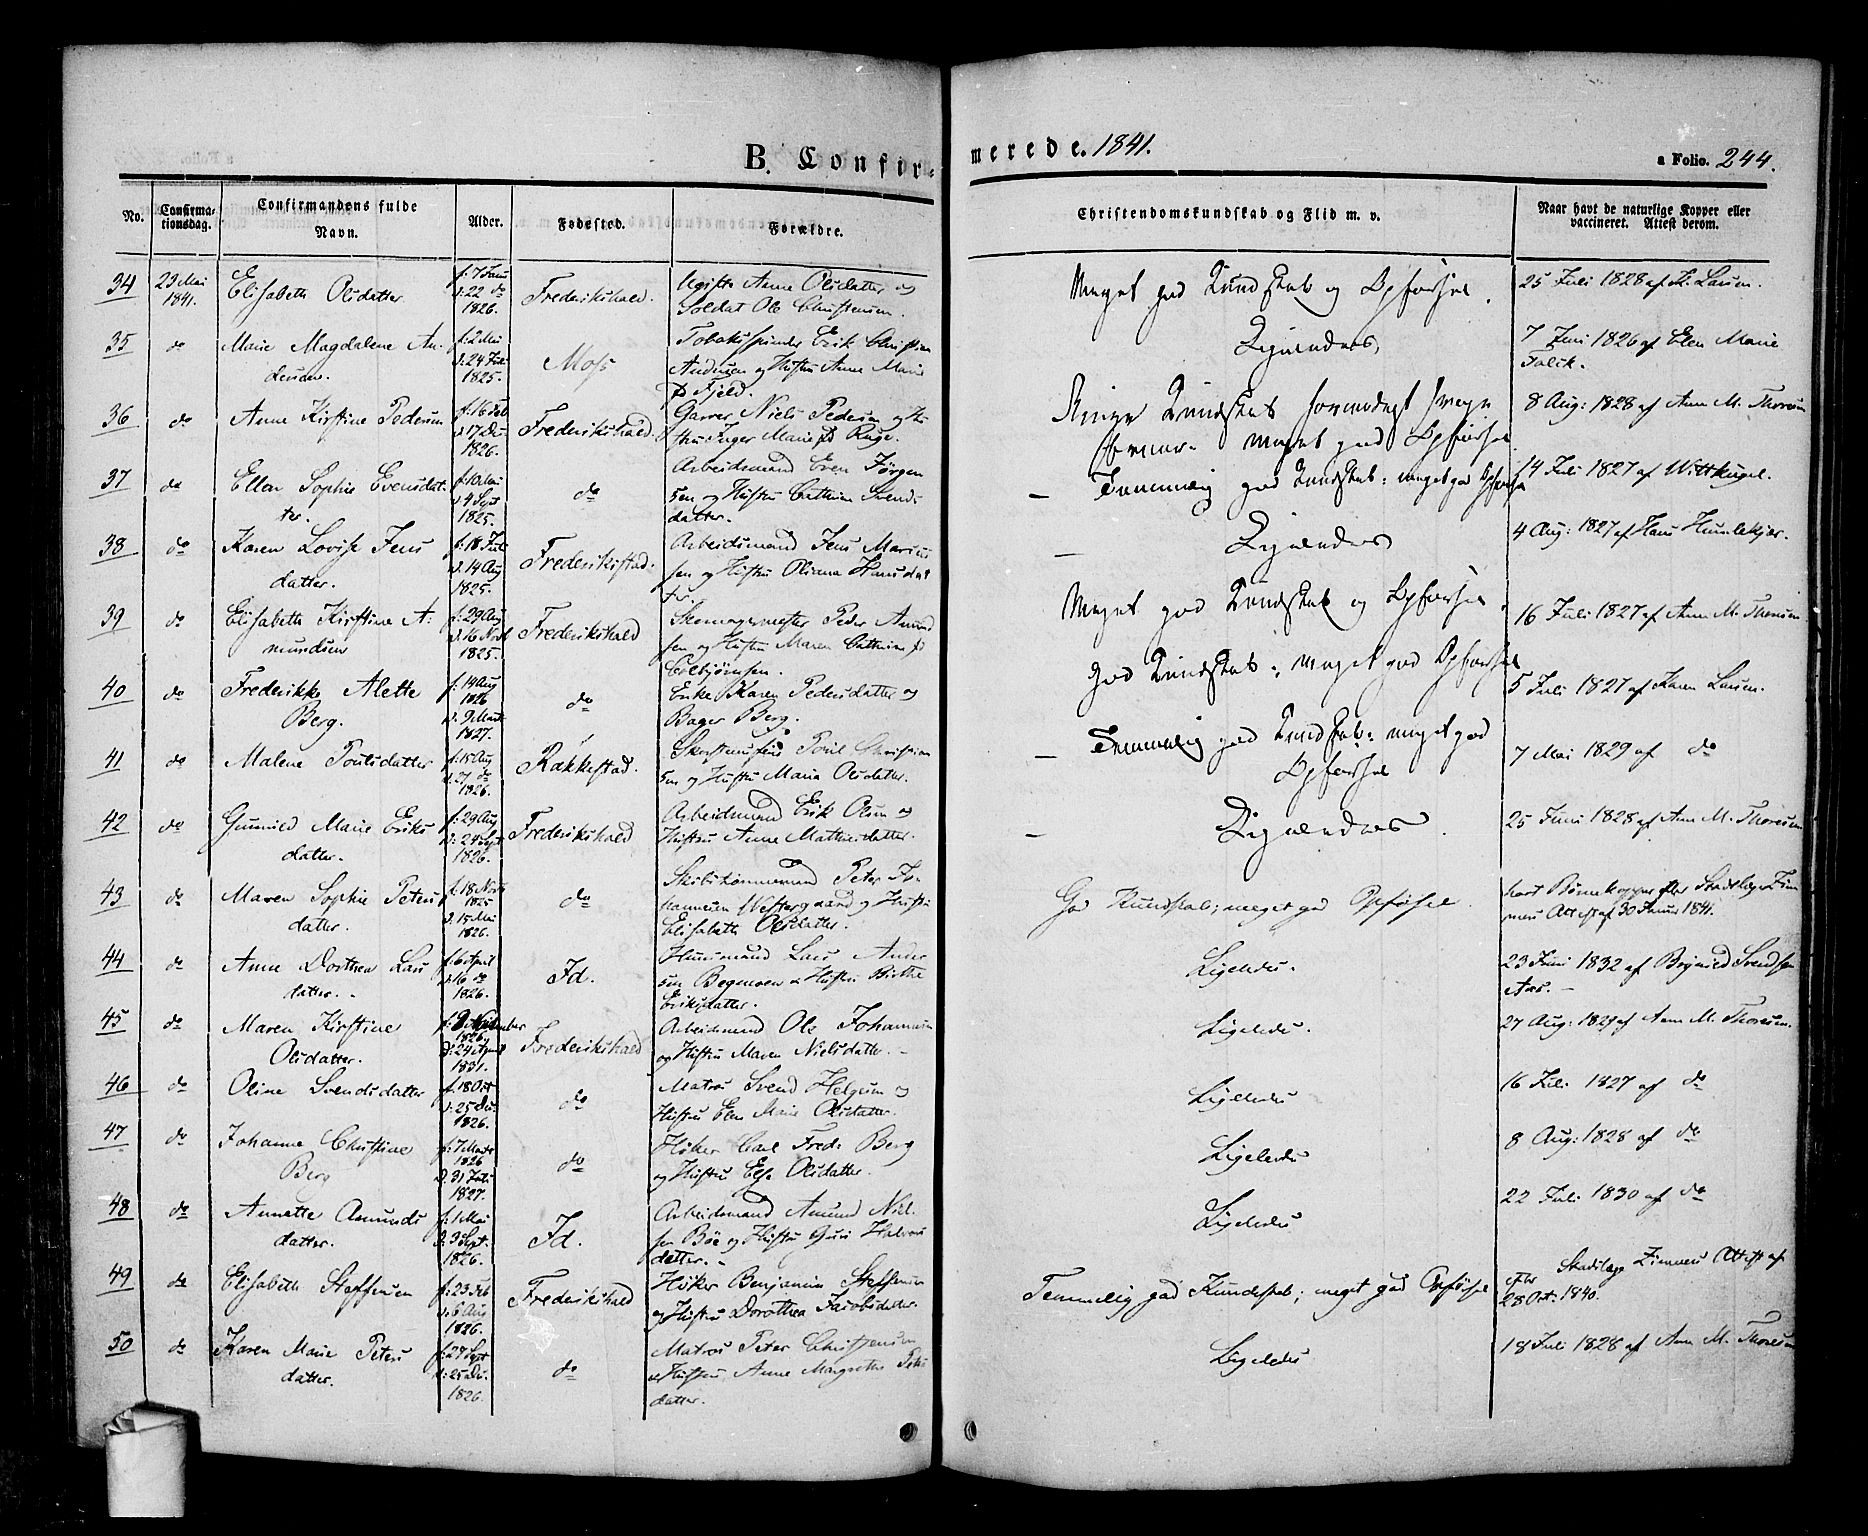 B. Confir-
merede. 1841.
a Folio. 244.
No.
Confirma-
tionsdag.
Confirmandens fulde
Navn.
Alder.
Fødested.
Forældre.
Christendomskundskab og Flid m. v.
Naar havt de naturlige Kopper eller
vaccineret. Attest derom.
34 23 Mai 1841. Elisabeth Olsdatter f. 7 d. 22 do 1826. Frederikshald. Ugifte Anne Olsdatter og
Soldat Ole Christensen. Meget god Kundskab og Opførsel. 25 Juli 1828 af K. Larsen.
35 do Marie Magdalene An-
dersen. f. 2 Mai d. 24 1825. Moss Tobakspinder Erik Christian
Andersen og Hustru Anne Marie
f. Fjeld. Ligeledes 7 Juni 1826 af Elen Marie
Falck.
36 do Anne Kirstine Pedersen f. 16 Feb d. 17 De. 1826. Frederikshald. Garver Niels Pedersen og Hu-
stru Inger Marie fd Ruge. Ringe Kundskab
meget god Opførsel 8 Aug: 1828 af Ann M. Thoresen
37 do Ellen Sophie Evensdat-
ter. f. 10 Mai d. 4 Sept 1825. do Arbeidsmand Even Jørgen-
sen og Hustru Cathrine Svends-
datter. – Temmelig god Kundskab; meget god Opførsel 14 Juli 1827 af Wittkugel.
38 do Karen Lovise Jens
datter. f. 18 d. 14 Aug 1825. Frederikstad. Arbeidsmand Jens Marius
sen og Hustru Oliana Hansdat
ter. – Ligeledes 4 Aug: 1827 af Hans Humlekjær.
39 do Elisabeth Kirstine A-
mundsen f. 29 Aug d. 16 Novb 1825. Frederikshald Skomagermester Peder Amund
sen og Hustru Maren Cathrine fd
Meget god Kundskab og Opførsel. 16 Juli 1827 af Ann M. Thoresen.
40 do Frederikke Alette
Berg. f. 14 Aug 1826 d. 9 Marts 1827. do Enke Karen Pedersdatter og
Bager Berg. God Kundskab; meget god Opførsel 5 Juli 1827 af Karen Larsen.
41 do Malene Poulsdatter f. 15 Aug d. 27 do 1826. Rakkestad. Poul Christian
sen og Hustru Maria Olsdatter. – Temmelig god Kundskab; meget god
Opførsel 7 Mai 1829 af do
42 do Gunnild Marie Eriks
datter. f. 29 Aug d. 24 Sept 1826. Frederikshald Arbeidsmand Erik Olsen og
Hustru Anne Mathiasdatter. – Ligeledes. 25 Juni 1828 af Ann M. Thoresen
43 do Maren Sophie Peters
datter. f. 18 Novb 1825 d. 15 Mai 1826. do Skibstømmermand Peter Jo-
hannesen Westergaard og Hustru
Elisabeth Olsdatter. God Kundskab; meget god Opførsel. havt Børnekopper efter Stadslæge Zim
mers Attest af 30 Januar 1841.
44 do Anne Dorthea Lars
datter. f. 6 April d. 16 do 1826. Id. Huusmand Lars Ander
sen og Hustru Birthe
Eriksdatter. Ligeledes. 23 Juni 1832 af Brynild Svendsen
Aas. –
45 do Maren Kirstine
Olsdatter. f. 1826 d. 24 April 1831. Frederikshald Arbeidsmand Ole Johannesen
og Hustru Maren Nielsdatter. Ligeledes. 27 Aug: 1827 af Ann M. Thoresen.
46 do Oline Svendsdatter f. 18 Oct d. 25 De. 1826. do Matros Svend Helgesen og
Hustru Elen Marie Olsdatter. Ligeledes 16 Juli 1827 af do
47 do Johanne Christine
Berg f. 7 Marts 1826 d. 31 1827. do Høker Carl Fredr. Berg
og Hustru Else Olsdatter. Ligeledes 8 Aug: 1828 af do
48 do Annette Amunds
datter. f. 1 Mai d. 3 Sept. 1826. Id. Arbeidsmand Amund Niel-
sen Bøe og Hustru Guri Halvors
datter. Ligeledes 22 Juli 1830 af do
49 do Elisabeth Steffensen f. 23 Feb d. 6 Aug 1826. Frederikshald Høker Benjamin Steffensen
og Hustru Dorothea Jacobsdatter. Temmelig god Kundskab; meget god Opførsel efter Stadslæge Zimmers Attest af
28 Oct. 1840.
50 do Karen Marie Peters
datter. f. 27 Sept d. 25 De. 1826. do Matros Peter Christensen
og Hustru Anne Margrethe
datter. Ligeledes 18 Juli 1828 af Ann M. Thoresen